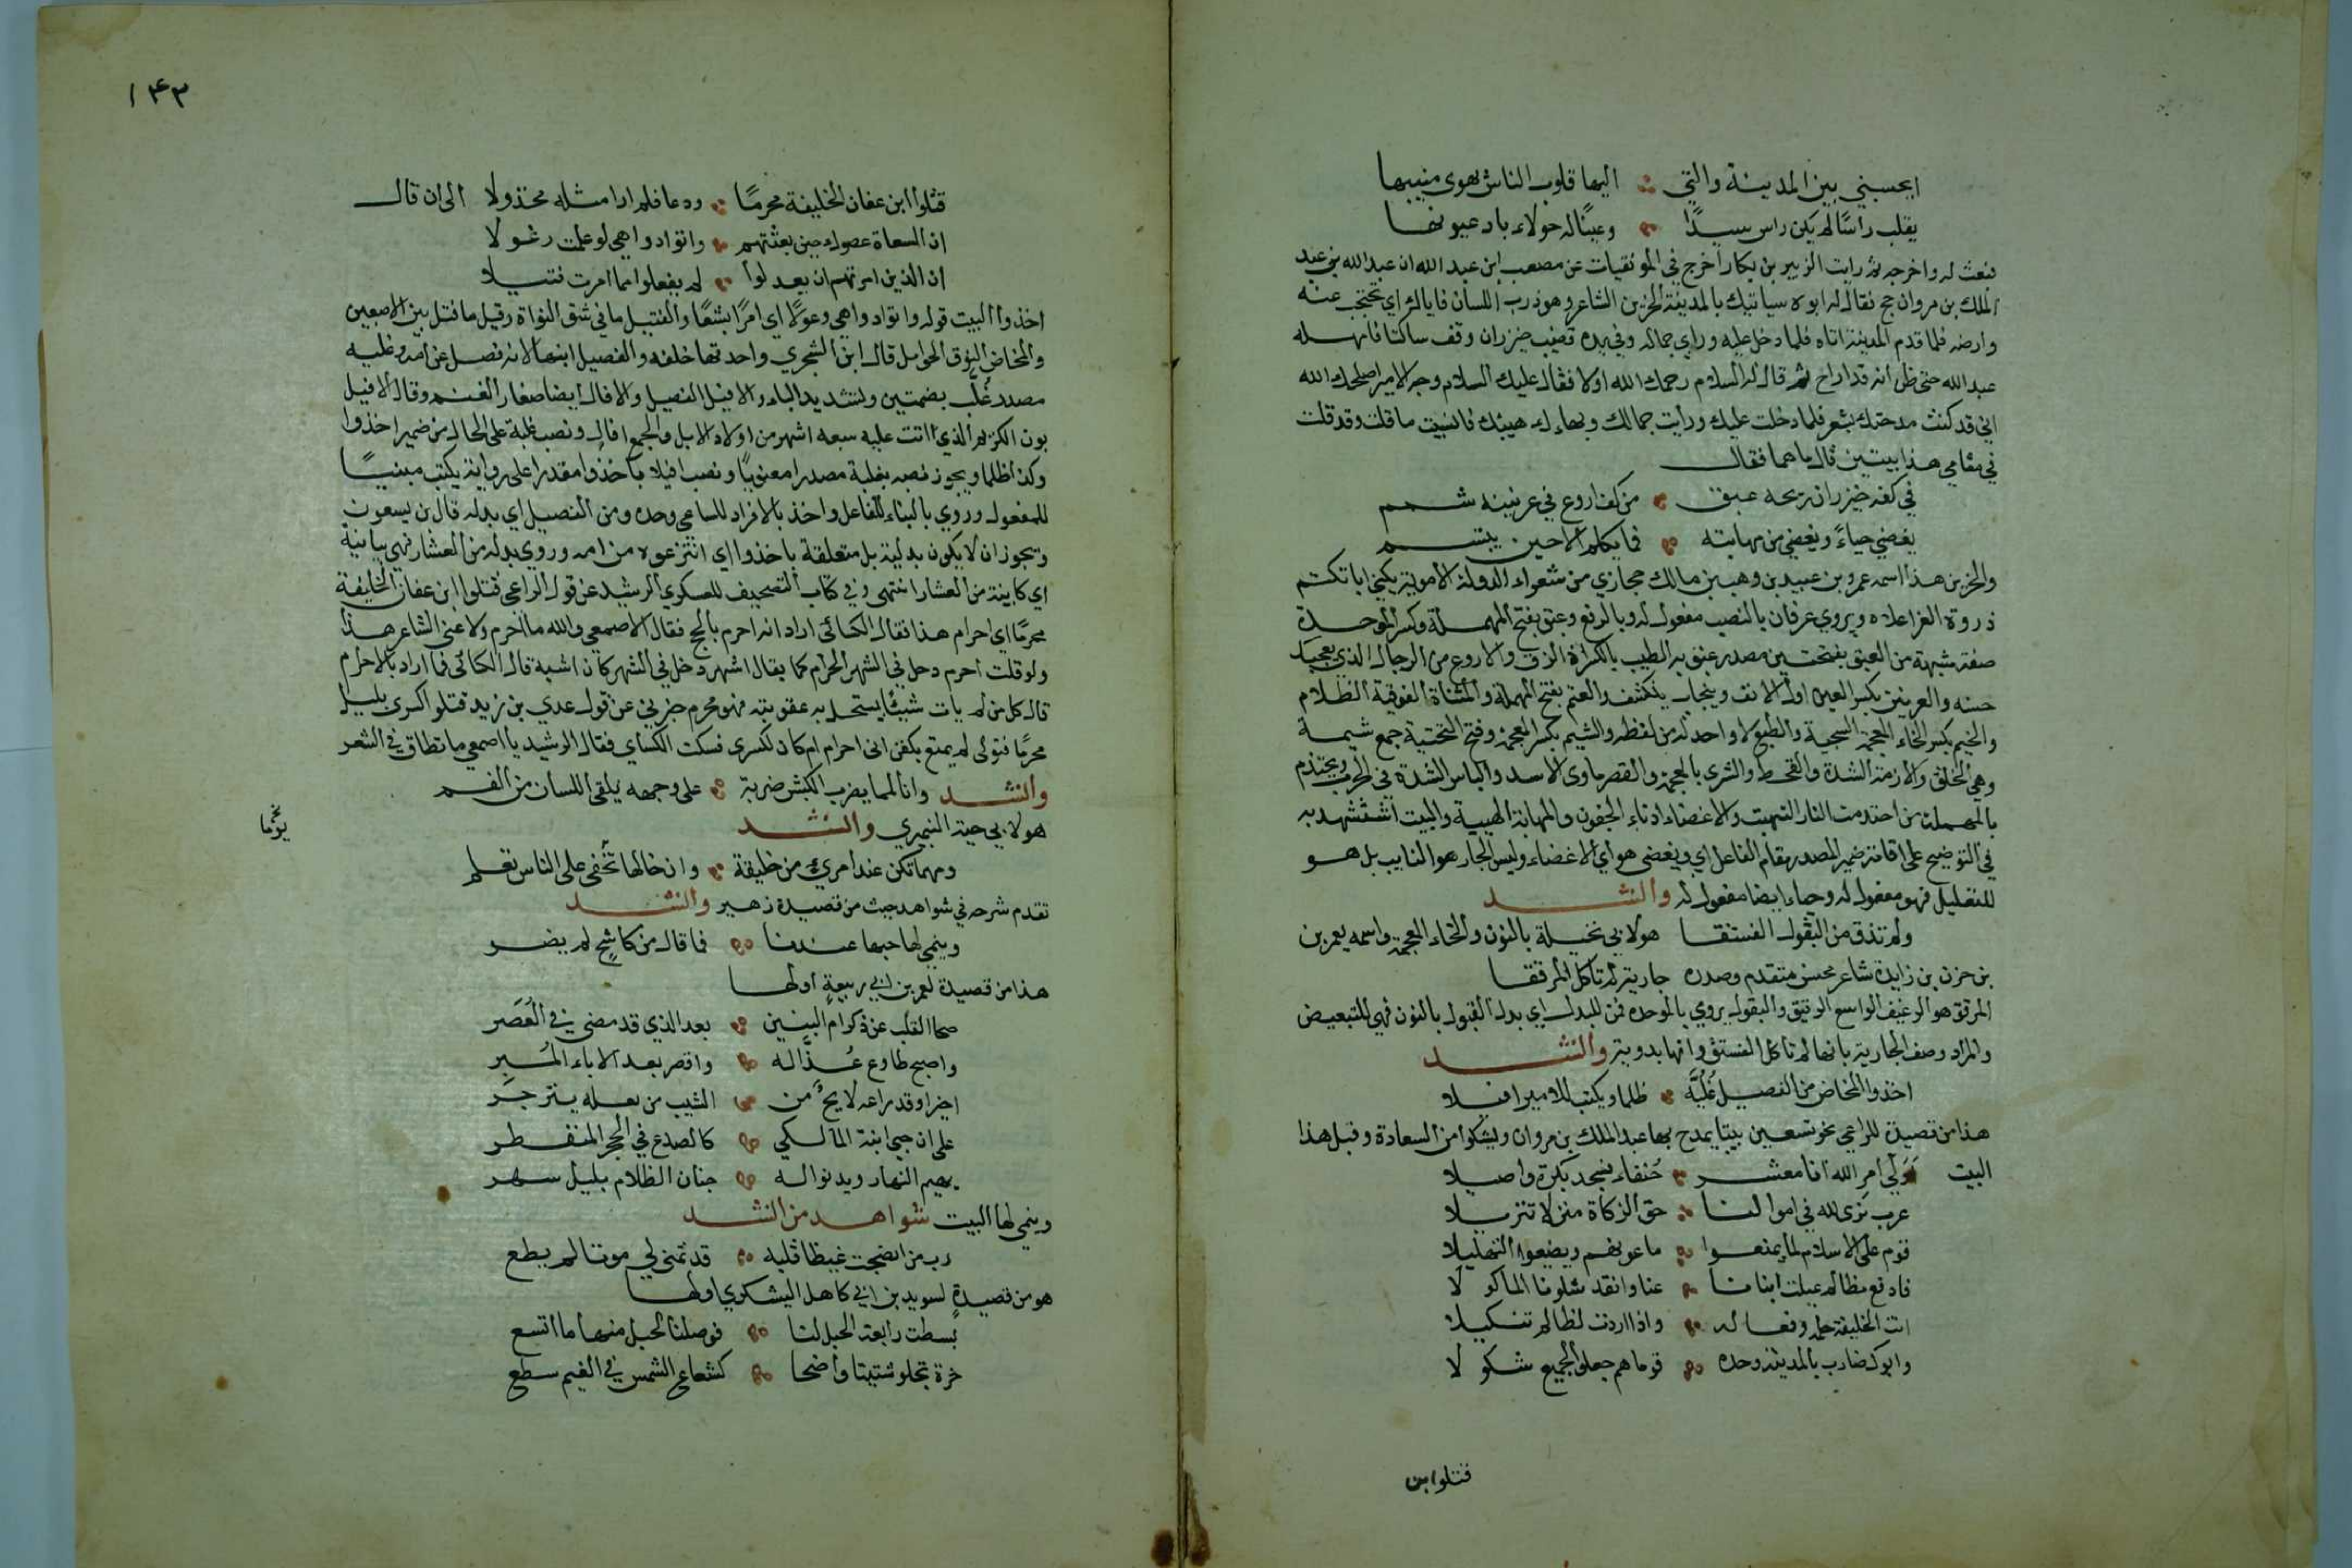 ايحسبني بين المدينة والتي اليها قلوب الناس يهوى منيبها
يقلب راسًا لم يكن راس سيدًا وعينًا له حولاء باد عيوبها
فبعث له واخرجه ثم رايت الزبير بن بكار اخرج في الموفقيات عن مصعب ابن عبد الله ان عبد الله بن عبد
الملك بن مروان حج فقال له ابوه سياتيك بالمدينة الحزين الشاعر وهو ذرب اللسان فاياك اي تحتجب عنه
وارضه فلما قدم المدينة اتاه فلما دخل عليه وراي جماله وفي يده قضيب خيزران وقف ساكتا فامهله
عبد الله حتى ظن انه قد اراح ثم قال له السلام رحمك الله اولا فقال عليك السلام وجه الامير اصلحك الله
اني قد كنت مدحتك بشعر فلما دخلت عليك ورايت جمالك وبهاءك هبتك فانسيت ما قلت وقد قلت
في مقامي هذا بيتين قال ما هما فقال
في كفه خيزران ريحه عبق من كف اروع في عرنينه شمم
يغضي حياءً ويغضي من مهابته فما يكلم الا حين يبتسم
والحزين هذا اسمه عمرو بن عبيد بن وهيب بن مالك حجازي من شعراء الدولة الاموية يكني ابا تكتم
ذروة العز اعلاه ويروي عرفان بالنصب مفعول له وبالرفع وعبق بفتح المهملة وكسر الموحدة
صفة مشبهة من العبق بفتحتين مصدر عبق به الطيب بالكسر اذا لزق والاروع من الرجال الذي يعجبك
حسنه والعرنين بكسر العين اول الانف وينجاب ينكشف والعتم بفتح المهملة والمثناة الفوقية الظلام
والخيم بكسر الخاء المعجمة السجية والطبع لا واحد له من لفظه والشيم بكسر المعجمة وفتح التحتية جمع شيمة
وهي الخلق والازمة الشدة والقحط والشرى بالمعجمة والقصر ماوى الاسد والباس الشدة في الحرب ويحتدم
بالمهملة من احتدمت النار التهبت والاغضاء ادناء الجفون والمهابة الهيبة والبيت استشهد به
في التوضيح على اقامة ضمير المصدر مقام الفاعل اي ويغضى هو اي الاغضاء وليس الجار هو النايب بل هو
للتعليل فهو مفعول له وحياء ايضا مفعول له وانشد
ولم تذق من البقول الفستقا هو لابي نخيلة بالنون والخاء المعجمة واسمه يعمر بن
بن حزن بن زايدة شاعر محسن متقدم وصدره جارية لم تاكل المرققا
المرقق هو الرغيف الواسع الرقيق والبقول يروي بالموحدة فمن للبدل اي بدل البقول بالنون فهي للتبعيض
والمراد وصف الجارية بانها لم تاكل الفستق وانها بدوية وانشد
اخذوا المخاض من الفصيل غُلُبَّة ظلما ويكتب للامير افيلا
هذا من قصيدة للراعي نحو تسعين بيتا يمدح بها عبد الملك بن مروان ويشكو من السعادة وقبل هذا
البيت اولي امر الله انا معشر حُنفاء نسجد بكرة واصيلا
عرب نرى لله في اموالنا حق الزكاة منزلا تنزيلا
قوم على الاسلام لما يمنعوا ماعونهم ويضيعوا التهليلا
فادفع مظالم عيلت ابنانا عنا وانقذ شلونا الماكولا
انت الخليفة حلمه وفعاله واذا اردت لظالم تنكيلا
وابوك ضارب بالمدينة وحده قوما هم جعلوا الجميع شكولا
قتلوا ابن
١٤٣
قتلوا ابن عفان الخليفة محرمًا ودعا فلم ار مثله مخذولا الى ان قال
ان السعاة عصوك حين بعثتهم واتوا دواهي لو علمت وغولا
ان الذين امرتهم ان يعدلوا لم يفعلوا مما امرت فتيلا
اخذوا البيت قوله واتوا دواهي وغولًا اي امرًا بشعًا والفتيل ما في شق النواة وقيل ما فتل بين الاصبعين
والمخاض النوق الحوامل قال ابن الشجري واحدتها خلفه والفصيل ابنها لانه فصل عن امه وغلبه
مصدر غُلُبّ بضمتين وتشديد الباء والافيل الفصيل والافال ايضا صغار الغنم وقال الافيل
بون الكزيم الذي اتت عليه سبعه اشهر من اولاد الابل والجمع افال ونصب غلبة على الحال من ضمير اخذوا
وكذا ظلما ويجوز نصبه بغلبة مصدرا معنويًا ونصب افيلا باخذوا مقدرا على رواية يكتب مبنيًا
للمفعول وروي بالبناء للفاعل واخذ بالافراد للساعي وحده ومن الفصيل اي بدله قال بن يسعون
ويجوز ان لا يكون بدلية بل متعلقة باخذوا اي انتزعوه من امه وروي بدله من العشار فهي بيانية
اي كاينة من العشار انتهى وفي كتاب التصحيف للعسكري الرشيد عن قول الراعي قتلوا ابن عفان الخليفة
محرمًا اي احرام هذا فقال الكسائي اراد انه احرم بالحج فقال الاصمعي والله ما احرم ولا عنى الشاعر هذا
ولو قلت احرم دخل في الشهر الحرام كما يقال اشهر دخل في الشهر كان اشبه قال الكسائي فما اراد بالاحرام
قال كل من لم يات شيئًا يستحل به عقوبته فهو محرم خبرني عن قول عدي بن زيد قتلوا كسرى بليل
محرمًا فتولى لم يمتع بكفن اي احرام ام كان لكسرى فسكت الكسأي فقال الرشيد يا اصمعي ما تطاق في الشعر
وانشد وانا لمما يضرب الكبش ضربة على وجهه يلقى اللسان من الفم
هو لابي حية النميري وانشد
ومهما تكن عند امرئ من خليقة وان خالها تخفى على الناس تعلم
تقدم شرحه في شواهد حيث من قصيدة زهير وانشد
وينمي لها حبها عندنا فما قال من كاشحٍ لم يضر
هذا من قصيدة لعمر بن ابي ربيعة اولها
صحا القلب عن ذكر ام البنين بعد الذي قد مضى في العُصَر
واصبح طاوع عُذَّاله واقصر بعد الاباء المُبر
اخيرا وقد راعه لايحٌ من الشيب من يعله ينزجَر
على ان حبي ابنة المالكي كالصدع في الحجر المنفطر
يهيم النهار ويدنو اله جنان الظلام بليل سهر
وينمي لها البيت شواهد من انشد
رب من انضجت غيظا قلبه قد تمنى لي موتا لم يطع
هو من قصيدةٍ لسويد بن ابي كاهل اليشكري اولها
بسطت رابعة الحبل لنا فوصلنا الحبل منها ما اتسع
حُرة تجلو شتيتا واضحا كشعاع الشمس في الغيم سطع